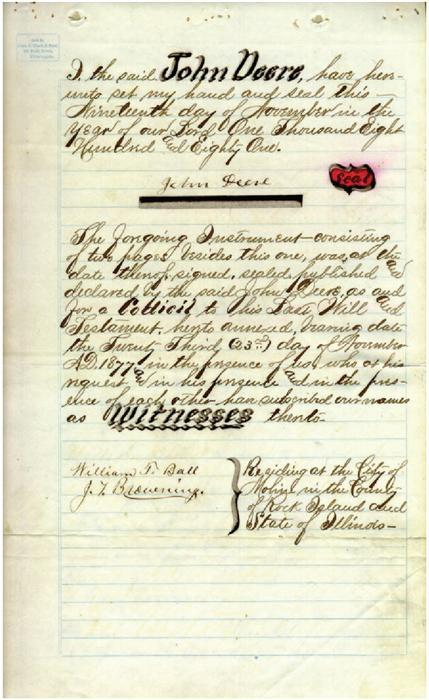 I, the said John Deere, have here-
unto set my hand and seal this
Nineteenth day of November in the
Year of our Lord One Thousand Eight
Hundred and Eighty One.
John Deere
Seal
The foregoing Instrument consisting
of two pages besides this one, was, at the
date thereof, signed, sealed published and
declared by the said John Deere, as and
for a Codicil to his Last Will and
Testament, hereto annexed, bearing date
the Twenty Third (23rd) day of November
A.D. 1877 in the presence of us, who at his
request, and in his presence and in the pres-
ence of each other have subscribed our names
as Witnesses thereto.
William T. Ball
J. T. Browning.
Residing at the City of
Moline in the County
of Rock Island and
State of Illinois